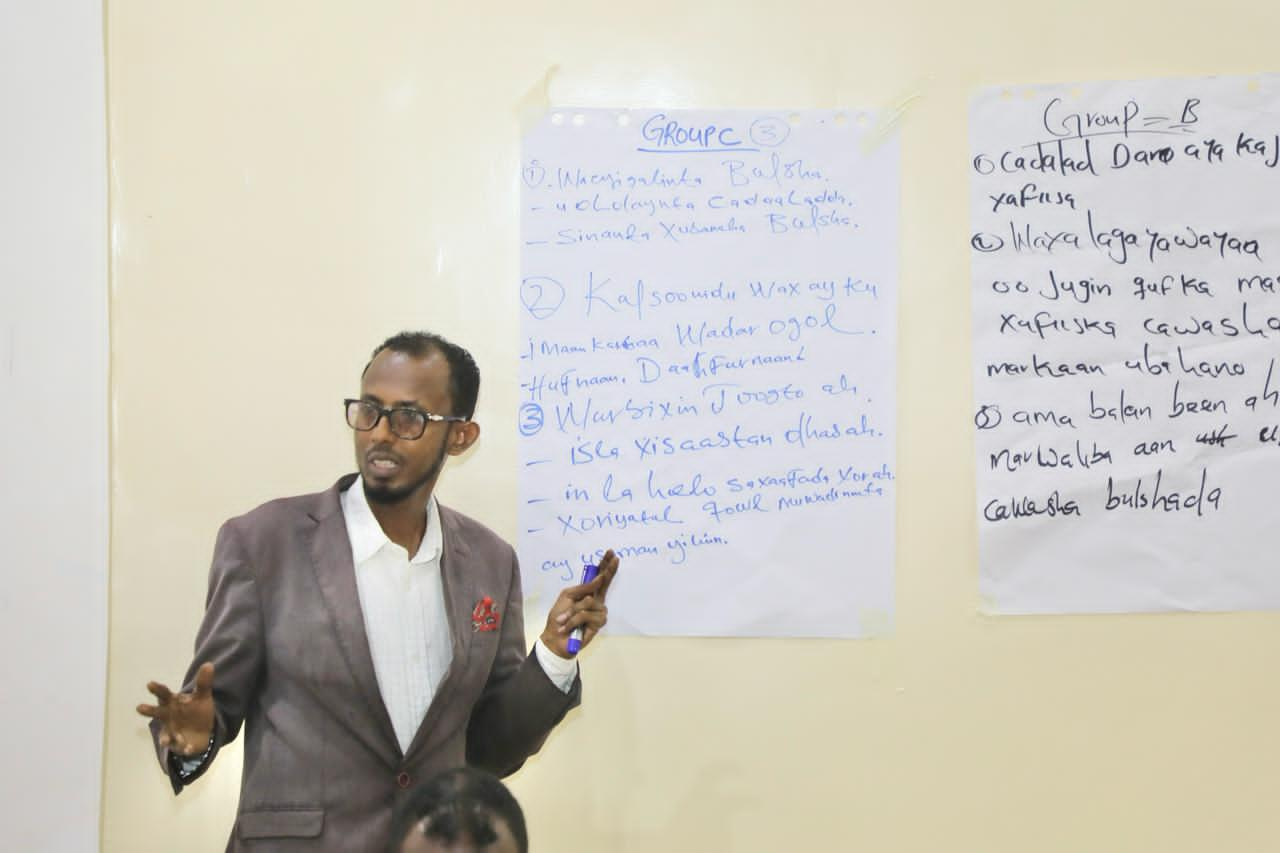 GROUP C 3
1. Wacyigalinta Bulsha.
- u oLolaynta Cadaaladda.
- Sinanta Xubanaha Bulsha.
2 Kalsoonidu Waxay Ku
-imaan kartaa Wadar ogol.
-Hufnaan, Daahfurnaant
3 Warbixin Joogto ah.
- isla xisaabtan dhab ah.
- in la helo saxaafada xor ah.
- Xoriyatul qowl muwadiniinta
ay u siman yihiin.
Group = B
1 Cadalad Daro aya kaj
xafiisa
2 Waxa lagayawayaa
oo Jugin qufka ma
xafiiska cawasha
markaan ubahano
3 ama balan been ah
marwaliba aan
cawasha bulshada